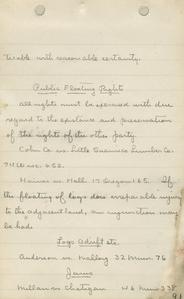 terable with reasonable certainty.
Public Floating Rights
all rights must be exercised with due
regard to the existence and preservation
of the rights of the other party.
Cohn Co. vs. Little Suamico Lumber Co.
74 Wis. 652.
Haines vs Hall 17 Oregon 165. If
the floating of logs does irreparable injury
to the adjacent land, an injunction may
be had.
Logs Adrift etc.
Anderson vs. Malloy 32 Minn 76
Jams
46 Minn